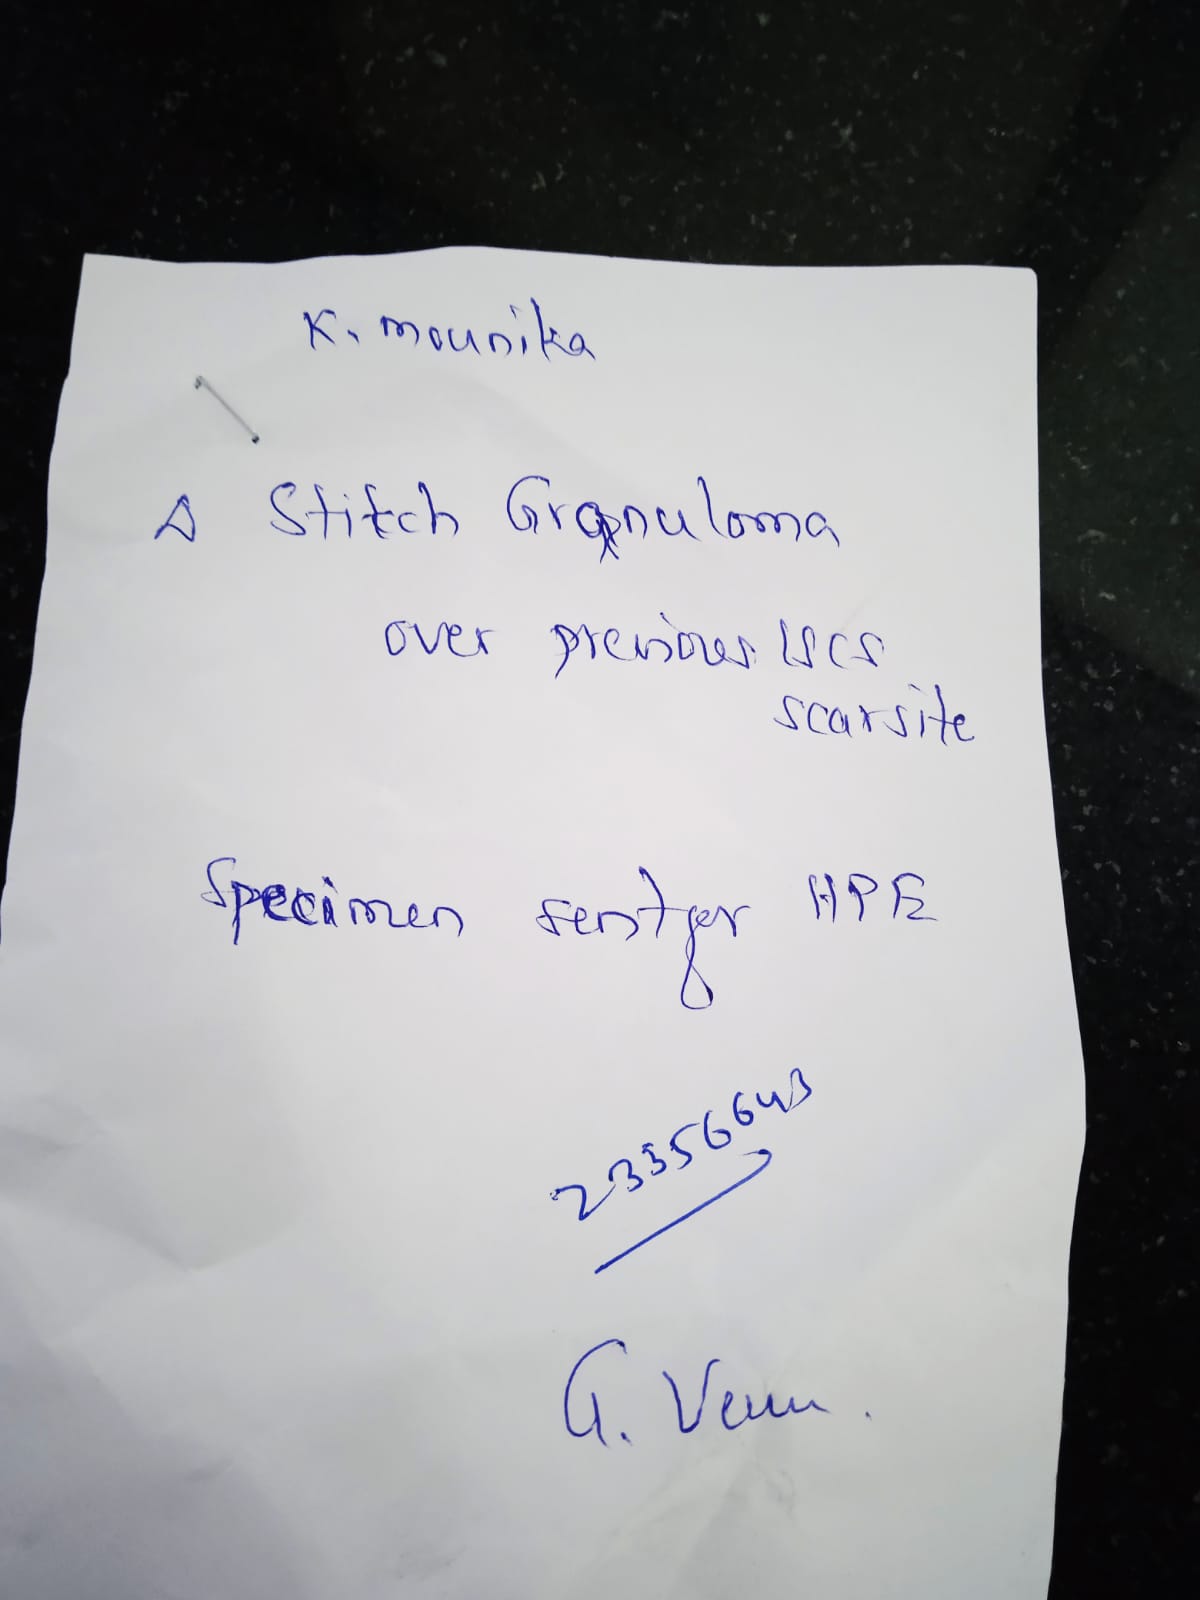 K. Mounika
Δ Stitch Granuloma
over previous LSCS
scarsite
Specimen sent for HPE
23356643
G. Venu.